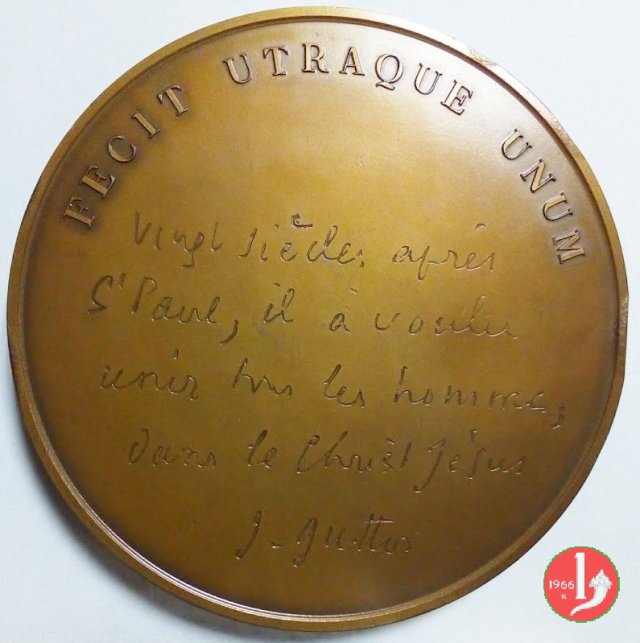 FECIT UTRAQUE UNUM
Vingt siècles après
St Paul, il à voulu
unir tous les hommes,
dans le Christ Jésus
J. Guitton
1966